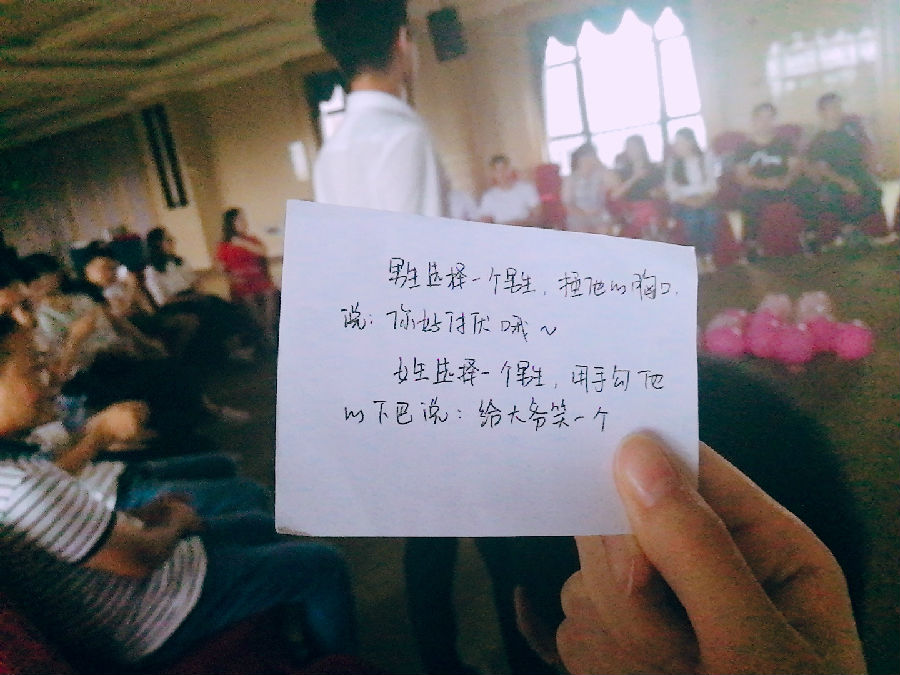 男生选择一个男生，捶他的胸口，
说：你好讨厌哦～
女生选择一个男生，用手勾他
的下巴说：给大爷笑一个